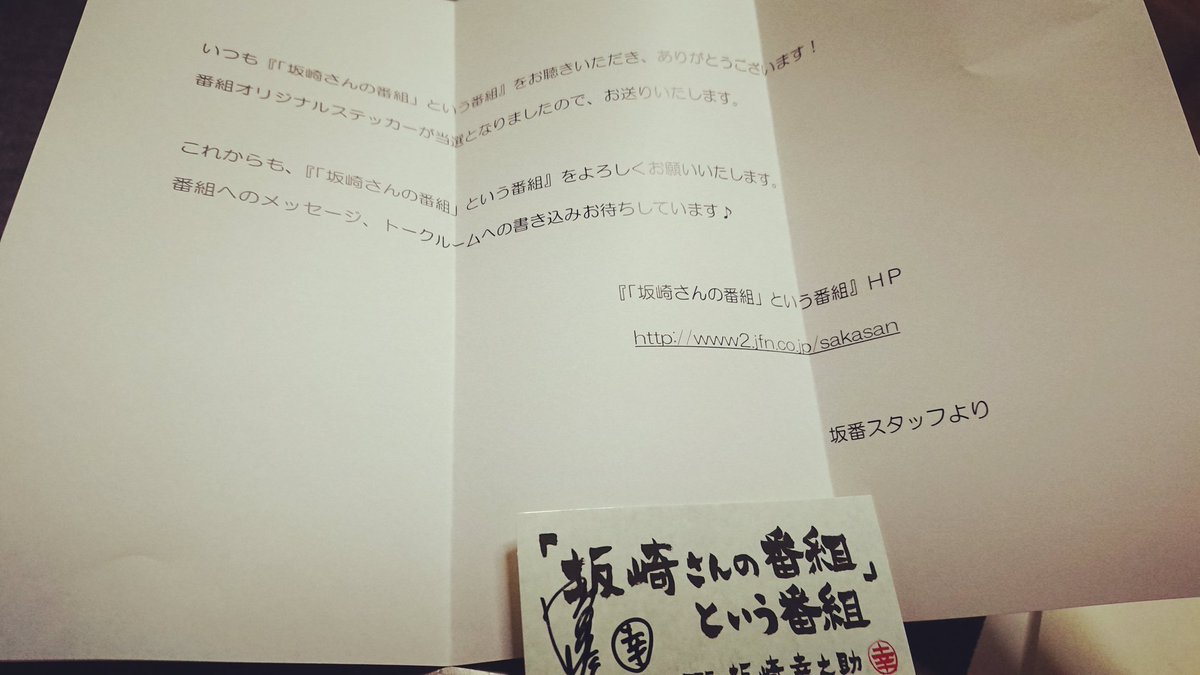 いつも『「坂崎さんの番組」という番組』をお聴きいただき、ありがとうございます！
番組オリジナルステッカーが当選となりましたので、お送りいたします。
これからも、『「坂崎さんの番組」という番組』をよろしくお願いいたします。
番組へのメッセージ、トークルームへの書き込みお待ちしています♪
『「坂崎さんの番組」という番組』ＨＰ
http://www2.jfn.co.jp/sakasan
坂番スタッフより
「坂崎さんの番組」
という番組
幸
坂崎幸之助
幸